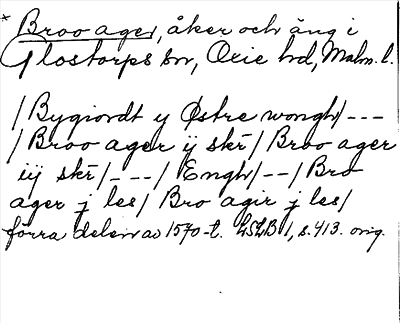 * Broo ager, åker och äng i
Glostorps sn, Oxie hd, Malm. l.
/Bygiordt y Østre wongh/---
/Broo ager ÿ skr̄/ Broo ager
iÿ skr̄/---/ Engh/--/ Bro
ager j les/ Bro agir j les/
förra delen av 1570-t. LSLB 1, s. 413. orig.